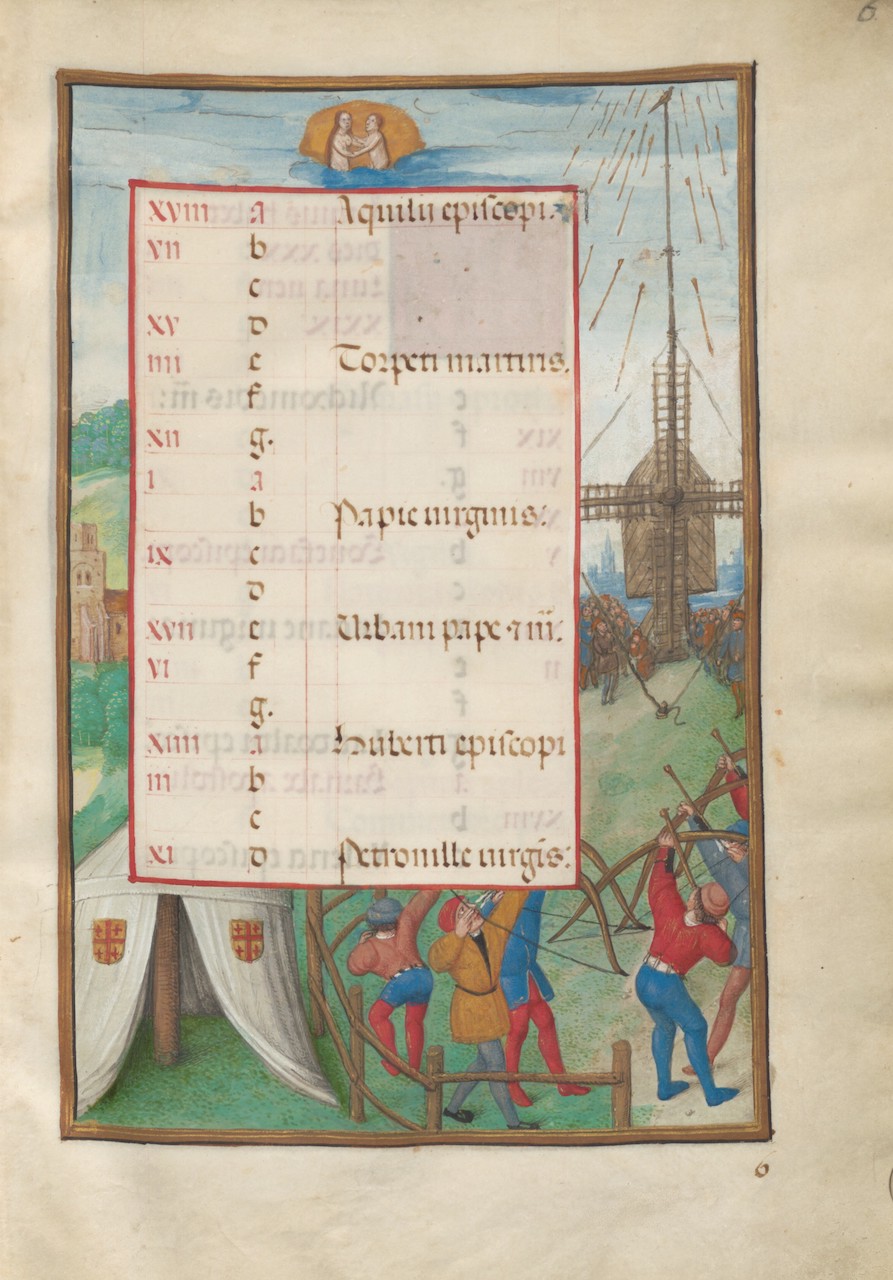 6
xviii a Aquilii episcopi.
vii b
c
xv d
iiii e Torpeti martiris.
f
xii g.
i a
b Papie uirginis:
ix c
d
xvii e Urbani pape · 7 m̄:
vi f
g.
xiiii a Huberti episcopi
iii b
c
xi d Petronille uirgīs:
6